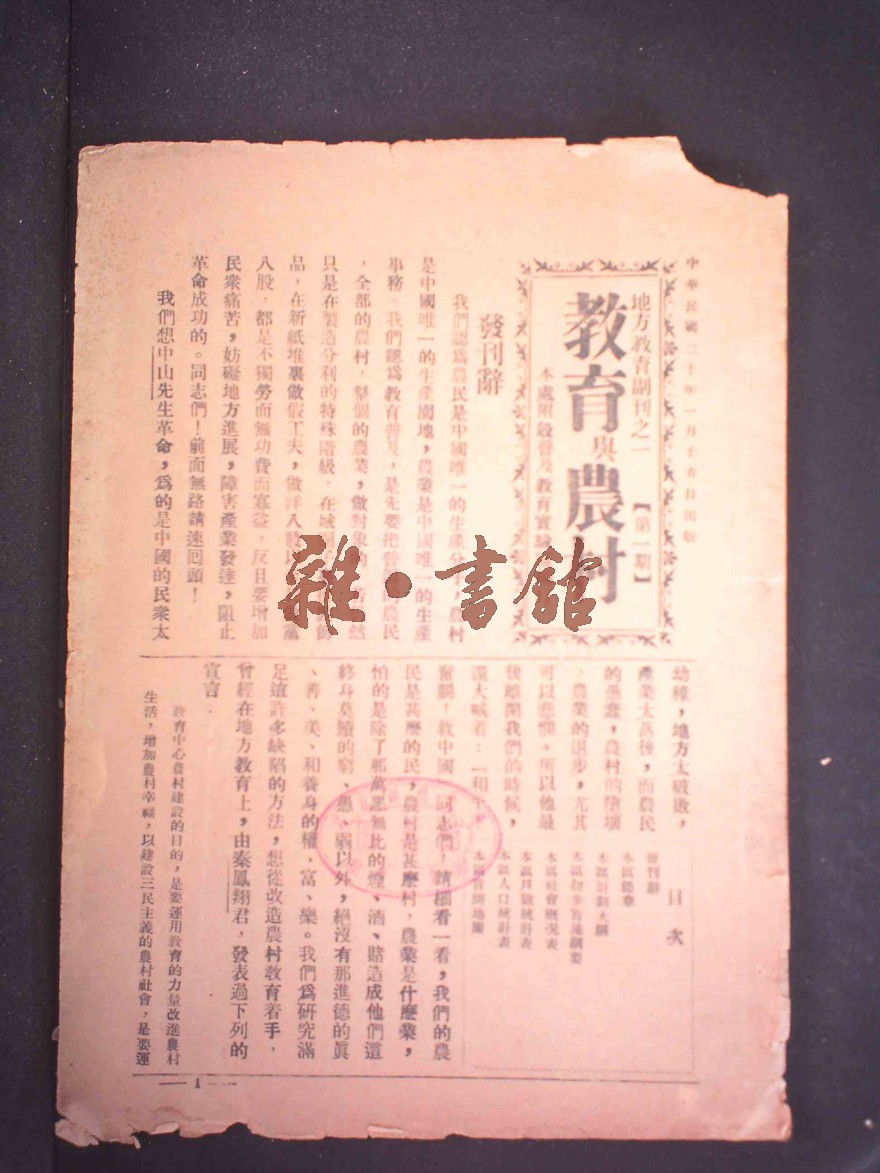 中華民國二十年一月十五日出版
地方教育副刊之一 【第一期】
教育與農村
本處附設普及教育實
發刊辭
我們認爲農民是中國唯一的生產分 農村
是中國唯一的生產園地，農業是中國唯一的生產
事務。我們認爲教育普及，是先要把 農民
，全部的農村，整個的農業，做對象的 然
只是在製造分利的特殊階級，在城
品，在新紙堆裏做假工夫，做洋八股 黨
八股，都是不獨勞而無功費而寡益，反且要增加
民衆痛苦，妨礙地方進展，障害產業發達，阻止
革命成功的。同志們！前面無路請速囘頭！
我們想中山先生革命，爲的是中國的民衆太
幼稚，地方太破敗，
產業太落後，而農民
的愚蠢，農村的墮壞
，農業的退步，尤其
可以悲憫。所以他最
後離開我們的時候，
還大喊着：「和平，
奮鬭，救中國 同志們，請細看一看，我們的農
民是甚麼的民，農村是甚麼村，農業是什麼業，
怕的是除了那萬惡無比的煙、酒、賭造成他們這
終身莫贖的窮、愚、弱以外，絕沒有那進德的眞
、善、美、和養身的權、富、樂。我們爲研究滿
足這許多缺陷的方法，想從改造農村教育着手，
曾經在地方教育上，由秦鳳翔君，發表過下列的
宣言．
教育中心農村建設的目的，是要運用教育的力量改進農村
生活，增加農村幸福，以建設三民主義的農村社會，是要運
目次
發刊辭
本區總章
本區計劃大綱
本區初步普通綱要
本區社會概況表
本區戶數統計表
本區人口統計表
本區 地圖
1
雜·書館